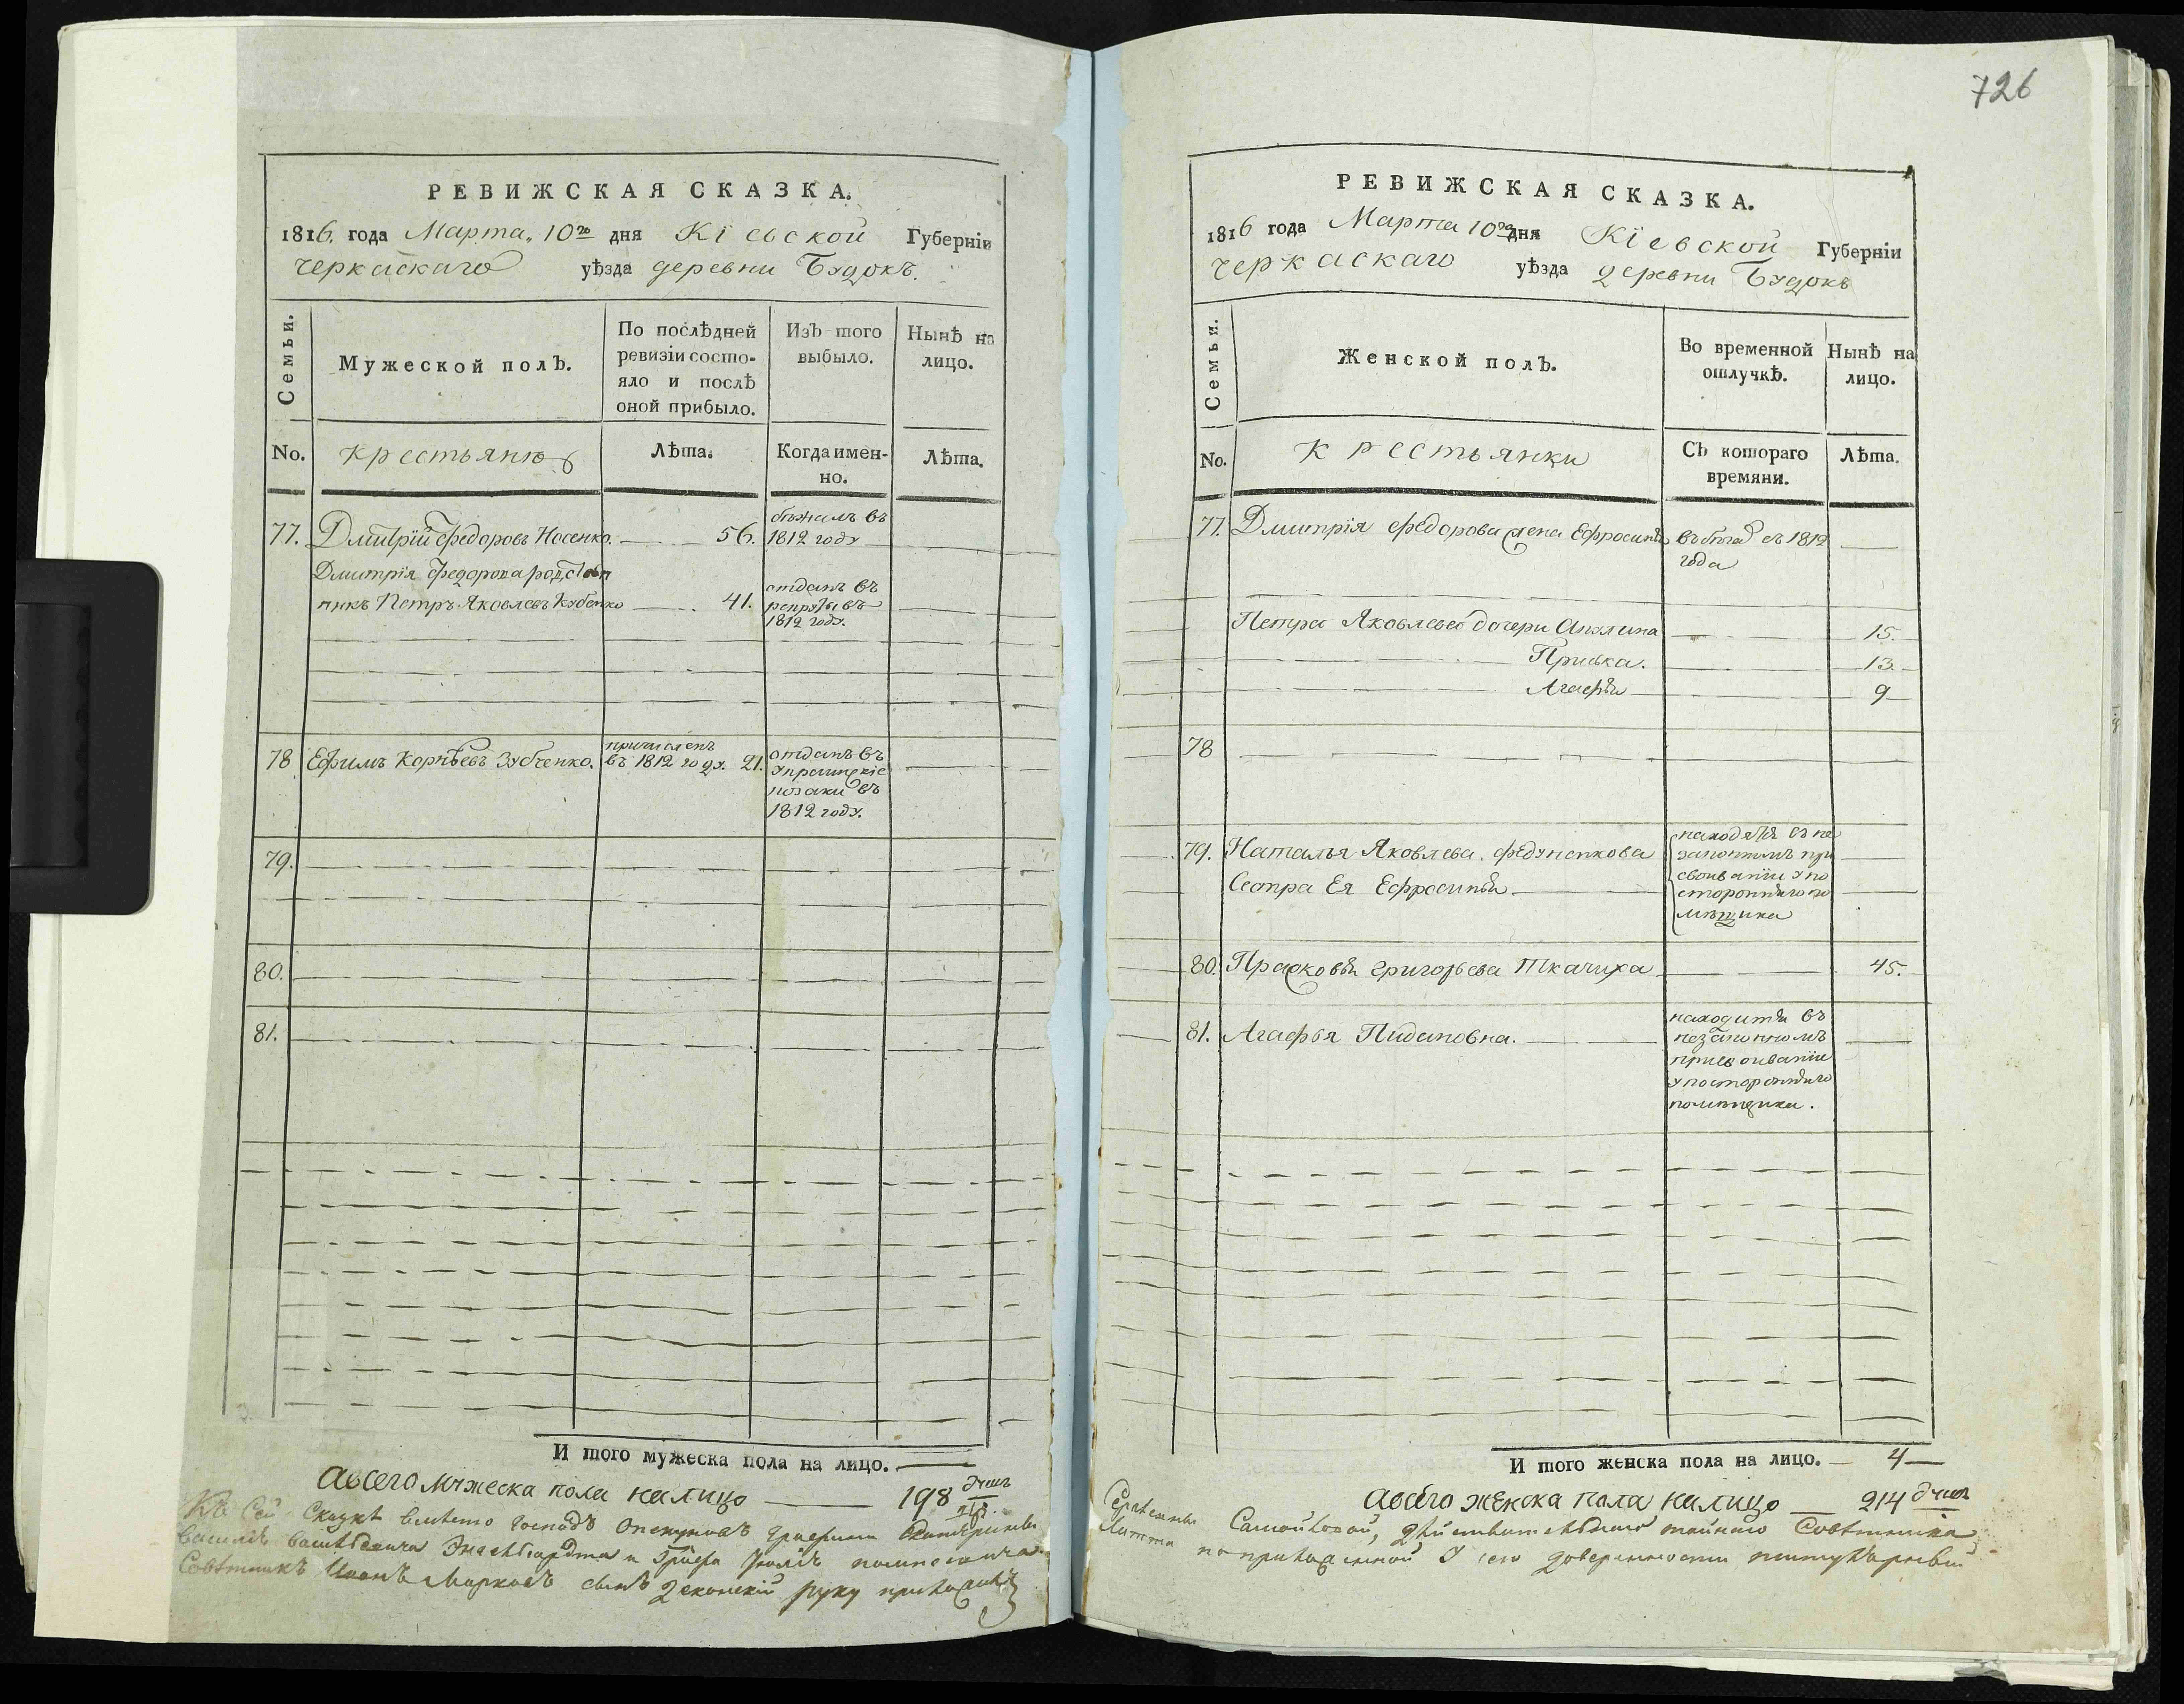 РЕВИЖСКАЯ СКАЗКА.
1816. года Марта 10го дня Кіевской Губерніи
черкаскаго уѣзда деревни Будокъ.
Семьи.
Мужеской полъ.
По послѣдней ревизіи состо-
яло и послѣ
оной прибыло.
Изъ того выбыло.
Нынѣ на лицо.
No.
крестьяне
Лѣта.
Когда имен-
но.
Лѣта.
77. Дмитрій Федоровъ Носенко. 56. бѣжалъ въ
1812 году
Дмитрія Федорова родстве
нникъ Петръ Яковлевъ Кубенко 41. отданъ въ
рекруты въ
1812 году.
78 Ефимъ Корнѣевъ Зубченко. причисленъ
въ 1812 году. 21. отданъ въ
украинскіе
козаки въ
1812 году.
79.
80.
81.
И того мужеска пола на лицо.
а всего мужеска пола налицо 198 душъ
Къ сей скаскѣ вмѣсто Господъ Опекуновъ Графини Екатерины
Василія Васильевича Энгельгардта и Графа Юлія помпеевича
Совѣтникъ Иванъ Марковъ сынъ руку приложилъ
726
РЕВИЖСКАЯ СКАЗКА.
1816 года Марта 10го дня Кіевской Губерніи
черкаскаго уѣзда деревни Будокъ
Семьи.
Женской полъ.
Во временной
отлучкѣ.
Нынѣ на
лицо.
No.
крестьянки
Съ котораго
времяни.
Лѣта.
77. Дмитрія Федорова жена Ефросинья въ бѣгахъ съ 1812
года
Петра Яковлева дочери Акулина 15.
Приська. 13.
Агафья 9
78
79. Наталья Яковлева Федуненкова
Сестра Ея Ефросинья
находятся въ не
законномъ при
своиваніи у по
сторонняго по
мѣщика
80. Прасковья Григорьева Ткачиха 45.
81. Агафья Пидановна.
находится въ
незаконномъ
присвоиваніи
у посторонняго
помѣщика.
И того женска пола на лицо. 4
а всего женска пола налицо 214 душъ
Сергѣевны Самойловой, дѣйствительнаго тайнаго Совѣтника
Литта по приказанной доверенности титулярный